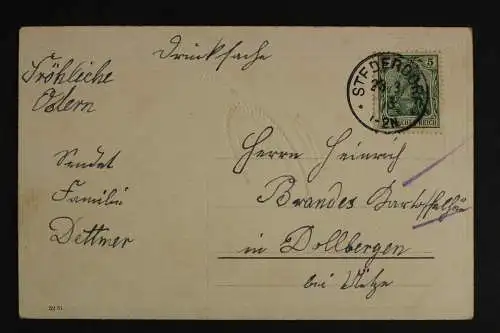 Drucksache
Fröhliche
Ostern
Sendet
Familie
Dettmer
5
STEDERDORF
REICH
Herrn Heinrich
Brandes
in Dollbergen
bei Uetze